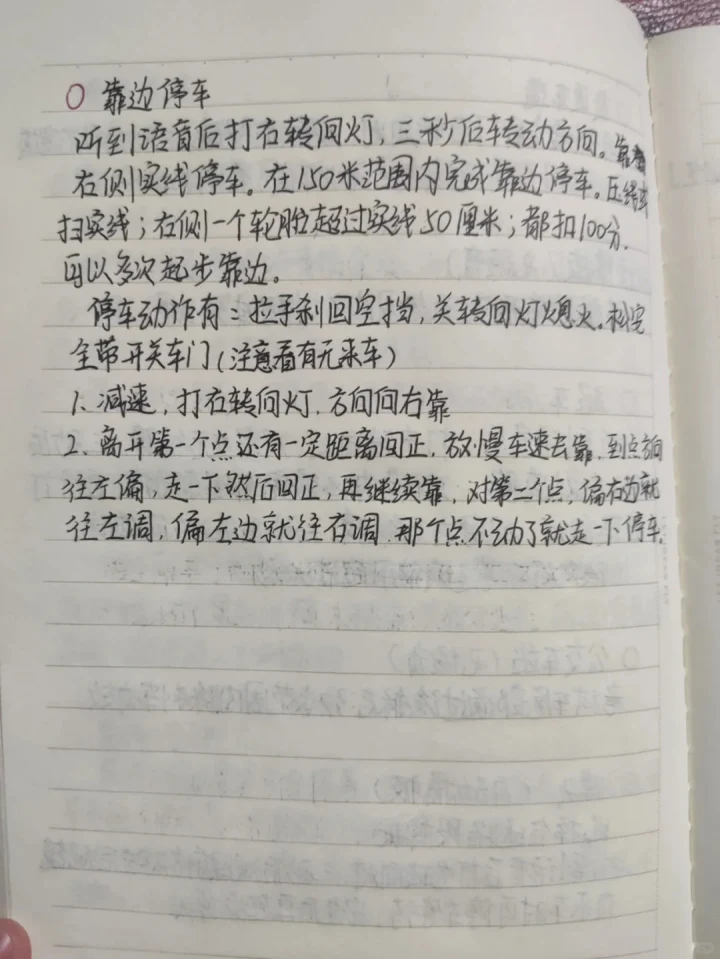 ○ 靠边停车
听到语音后打右转向灯,三秒后转动方向。靠着
右侧实线停车。在150米范围内完成靠边停车。压线或
扫实线;右侧一个轮胎超过实线50厘米;都扣100分.
可以多次起步靠边。
停车动作有:拉手刹回空挡,关转向灯熄火。松安
全带开关车门(注意看有无来车)
1、减速,打右转向灯.方向向右靠
2、离开第一个点还有一定距离回正.放慢车速去靠.到点方向
往左偏,走一下然后回正,再继续靠.对第二个点,偏右边就
往左调,偏左边就往右调.那个点不动了就走一下停车.